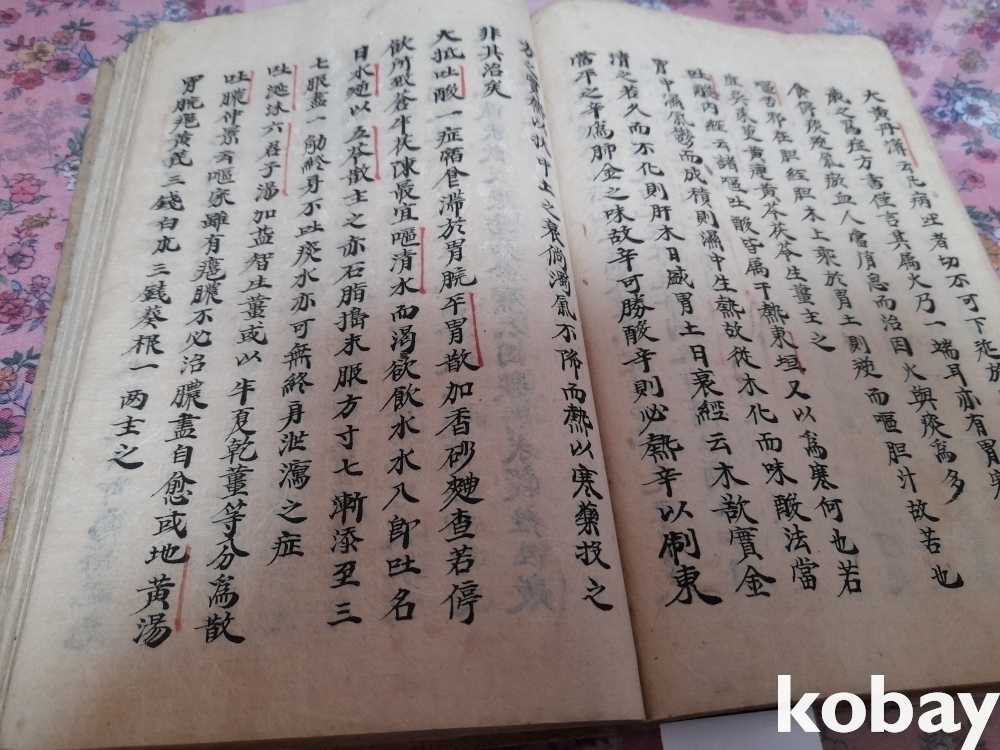 大黃丹溪云凡病嘔者切不可下逆故
歲之為症方書僅言其屬火乃一端耳亦有胃寒
食傷痰飲氣欲血人當消息而治因火與痰為多
嘔苦邪在胆經胆木上乘於胃土則逆而嘔胆汁故苦也
吳茱萸黃連黃芩茯苓生薑主之
吐酸內經云諸嘔吐酸皆屬于熱東垣又以為寒何也若
胃中濕氣鬱而成積則濕中生熱故從木化而味酸法當
清之若久而不化則肝木日盛胃土日衰經云木欲實金
當平之辛為肺金之味故辛可勝酸辛則必熱辛以制東
方之實熱以扶中土之衰倘濁氣不降而熱以寒藥投之
非其治矣
大抵吐酸一症宿食滯於胃脘平胃散加香砂麯查若停
飲所致蒼朮茯陳最宜嘔清水而渴欲飲水水入即吐名
曰水逆以五苓散主之赤石脂搗末服方寸七漸添至三
七服盡一劤終身不吐痰水亦可無終身泄瀉之症
吐涎沫六君子湯加益智生薑或以半夏乾薑等分為散
吐膿仲景云嘔家雖有癰膿不必治膿盡自愈或地黃湯
胃脘癰黃芪三錢白朮三錢葵根一两主之
kobay